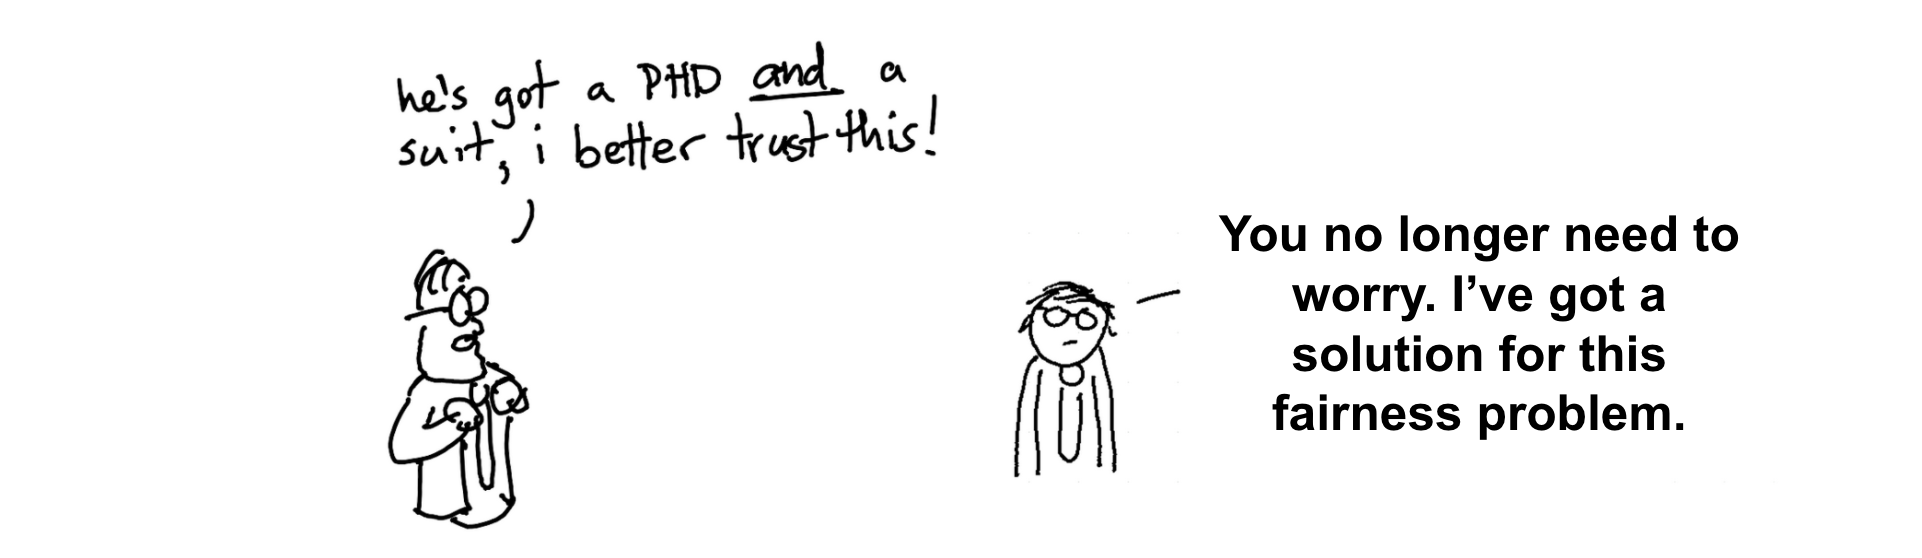 he's got a PHD and a
suit, i better trust this!
You no longer need to
worry. I’ve got a
solution for this
fairness problem.